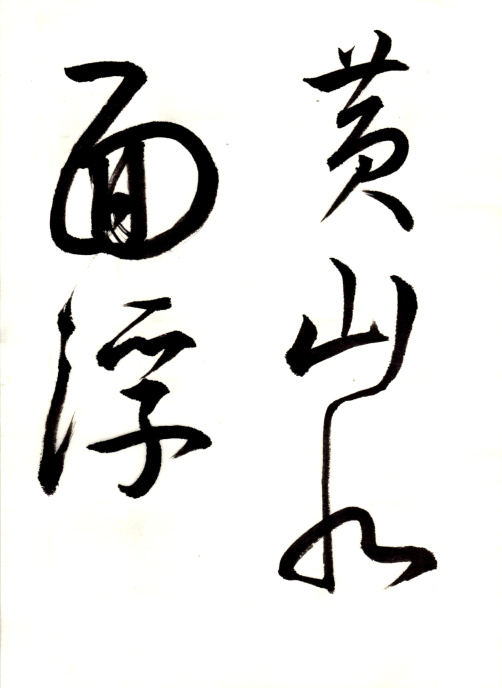 黄山水
面浮